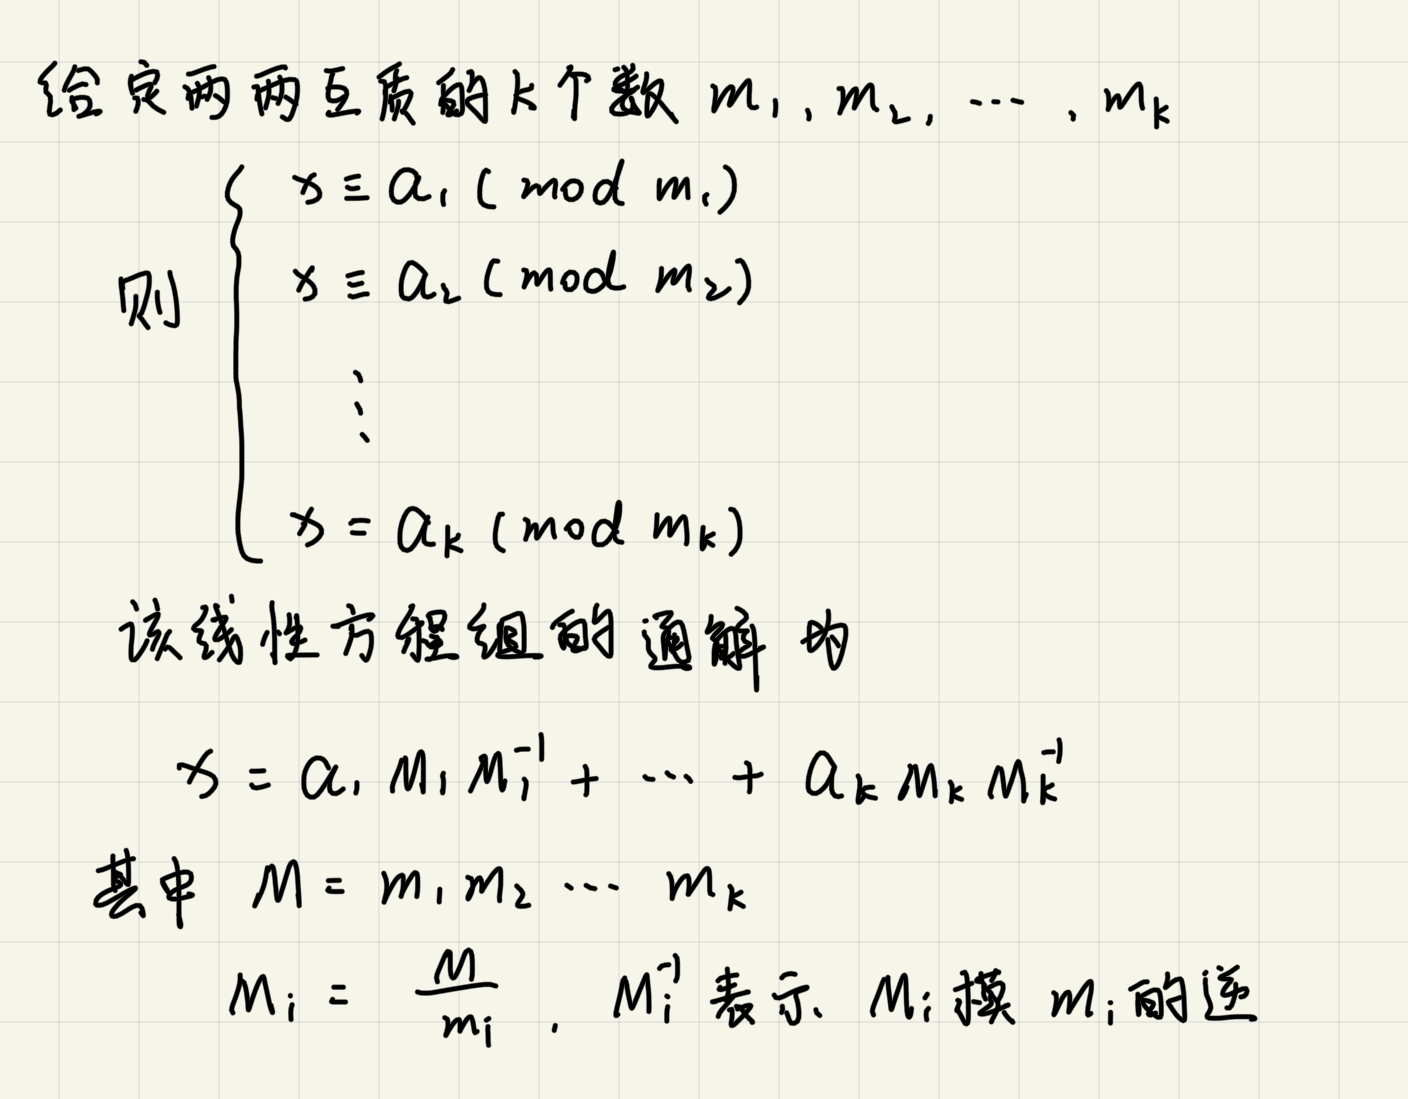 给定两两互质的k个数 m₁, m₂, ⋯, mₖ
x ≡ a₁ (mod m₁)
则
x ≡ a₂ (mod m₂)
⋮
x = aₖ (mod mₖ)
该线性方程组的通解为
x = a₁M₁M₁⁻¹ + ⋯ + aₖMₖMₖ⁻¹
其中 M = m₁m₂ ⋯ mₖ
Mᵢ = M/mᵢ , Mᵢ⁻¹ 表示 Mᵢ 模 mᵢ 的逆